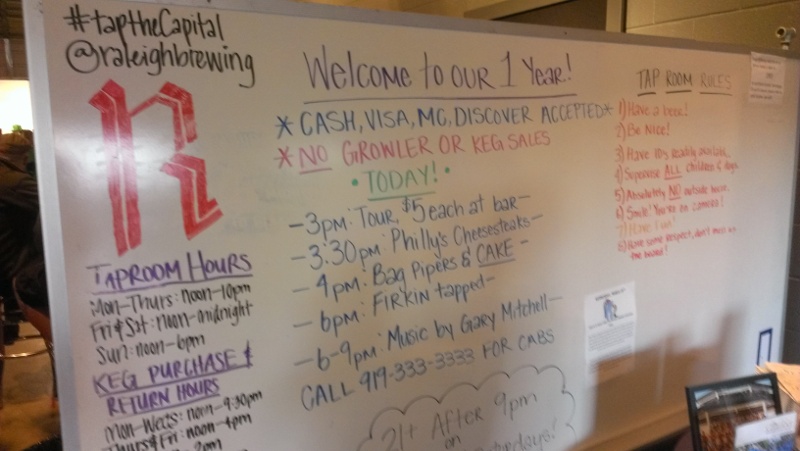 #tapTheCapital
@raleighbrewing
R
TAPROOM HOURS
Mon-Thurs: noon-10pm
Fri & Sat: noon-midnight
Sun: noon-6pm
KEG PURCHASE &
RETURN HOURS
Mon-Weds: noon-9:30pm
Thurs & Fri: noon-4pm
Welcome to our 1 Year!
* CASH, VISA, MC, DISCOVER ACCEPTED *
* NO GROWLER OR KEG SALES
• TODAY! •
-3pm: Tour, $5 each at bar-
-3:30pm: Philly's Cheesesteaks-
-4pm: Bag Pipers & CAKE-
-6pm: FIRKIN tapped-
-6-9pm: Music by Gary Mitchell-
CALL 919-333-3333 FOR CABS
21+ After 9pm
on
TAP ROOM RULES
1) Have a beer!
2) Be Nice!
3) Have IDs Readily available.
4) Supervise ALL children & dogs.
5) Absolutely NO outside booze.
6) Smile! You're on camera!
7) Have fun!
8) Have some respect, don't mess w/
the board!